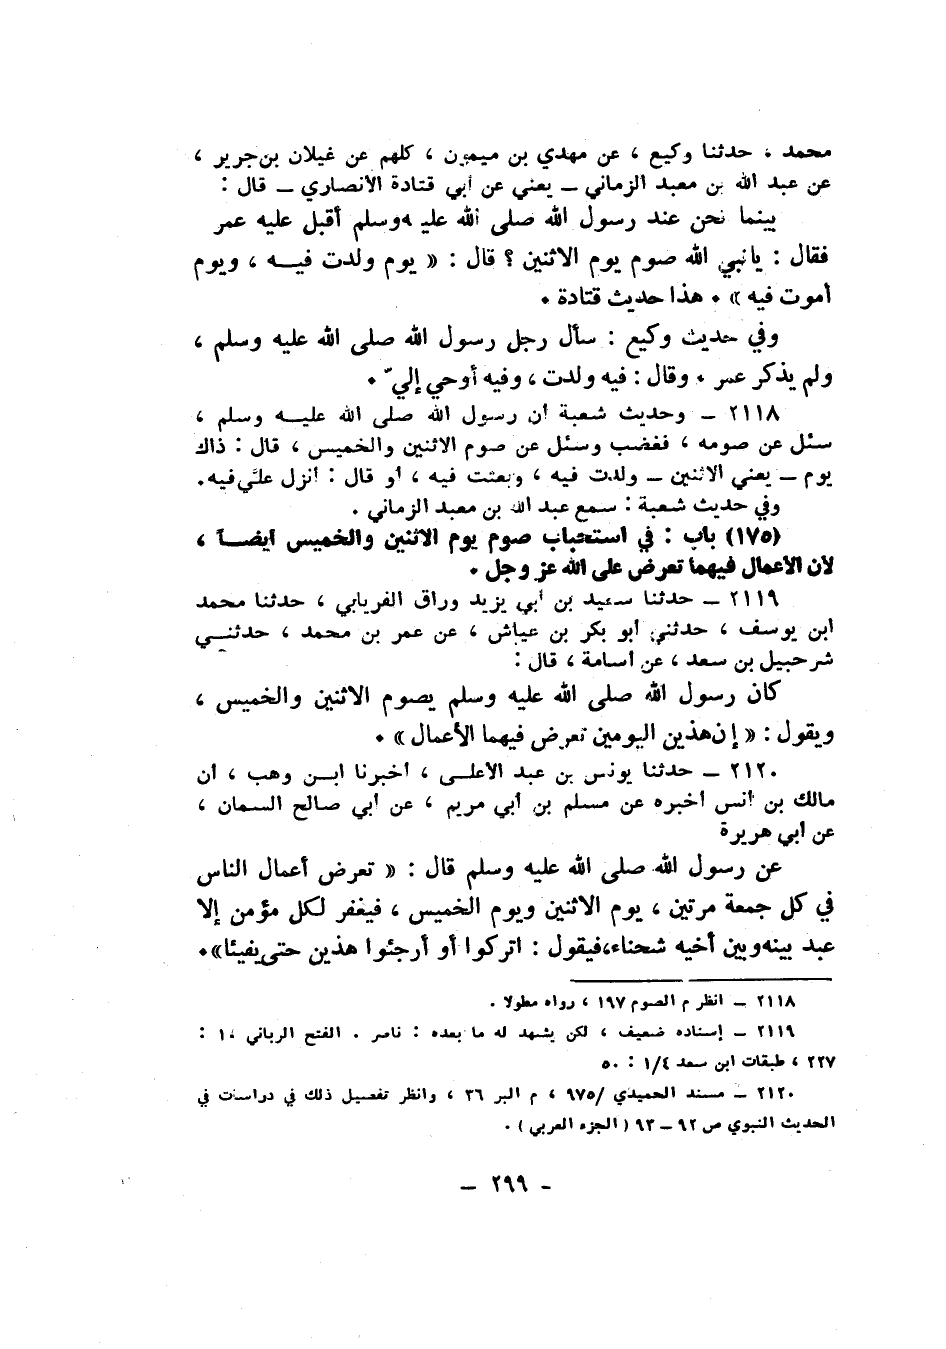 محمد ، حدثنا وكيع ، عن مهدي بن ميمون ، كلهم عن غيلان بن جرير ،
عن عبد الله بن معبد الزماني – يعني عن أبي قتادة الأنصاري – قال :
بينما نحن عند رسول الله صلى الله عليه وسلم أقبل عليه عمر
فقال : يا نبي الله صوم يوم الاثنين ؟ قال : « يوم ولدت فيــه ، ويوم
أموت فيه » . هذا حديث قتادة .
وفي حديث وكيع : سأل رجل رسول الله صلى الله عليه وسلم ،
ولم يذكر عمر . وقال : فيه ولدت ، وفيه أوحي إليّ .
٢١١٨ – وحديث شعبة أن رسول الله صلى الله عليــه وسلم ،
سئل عن صومه ، فغضب وسئل عن صوم الاثنين والخميس ، قال : ذاك
يوم – يعني الاثنين – ولدت فيه ، وبعثت فيه ، أو قال : أنزل عليّ فيه.
وفي حديث شعبة : سمع عبد الله بن معبد الزماني .
(١٧٥) باب : في استحباب صوم يوم الاثنين والخميس أيضــاً ،
لأن الأعمال فيهما تعرض على الله عز وجل .
٢١١٩ – حدثنا سعيد بن أبي يزيد وراق الفريابي ، حدثنا محمد
ابن يوسف ، حدثني أبو بكر بن عياش ، عن عمر بن محمد ، حدثنــي
شرحبيل بن سعد ، عن أسامة ، قال :
كان رسول الله صلى الله عليه وسلم يصوم الاثنين والخميس ،
ويقول : « إن هذين اليومين تعرض فيهما الأعمال » .
٢١٢٠ – حدثنا يونس بن عبد الأعلــى ، أخبرنا ابــن وهب ، أن
مالك بن أنس أخبره عن مسلم بن أبي مريم ، عن أبي صالح السمان ،
عن أبي هريرة
عن رسول الله صلى الله عليه وسلم قال : « تعرض أعمال الناس
في كل جمعة مرتين ، يوم الاثنين ويوم الخميس ، فيغفر لكل مؤمن إلا
عبد بينه وبين أخيه شحناء،فيقول : اتركوا أو أرجئوا هذين حتى يفيئا».
٢١١٨ – انظر م الصوم ١٩٧ ، رواه مطولا .
٢١١٩ – إسناده ضعيف ، لكن يشهد له ما بعده : ناصر . الفتح الرباني ١٠ :
٢٢٧ ، طبقات ابن سعد ١/٤ : ٥٠
٢١٢٠ – مسند الحميدي /٩٧٥ ، م البر ٣٦ ، وانظر تفصيل ذلك في دراسات في
الحديث النبوي ص ٩٢ – ٩٣ ( الجزء العربي ) .
- ٢٩٩ –